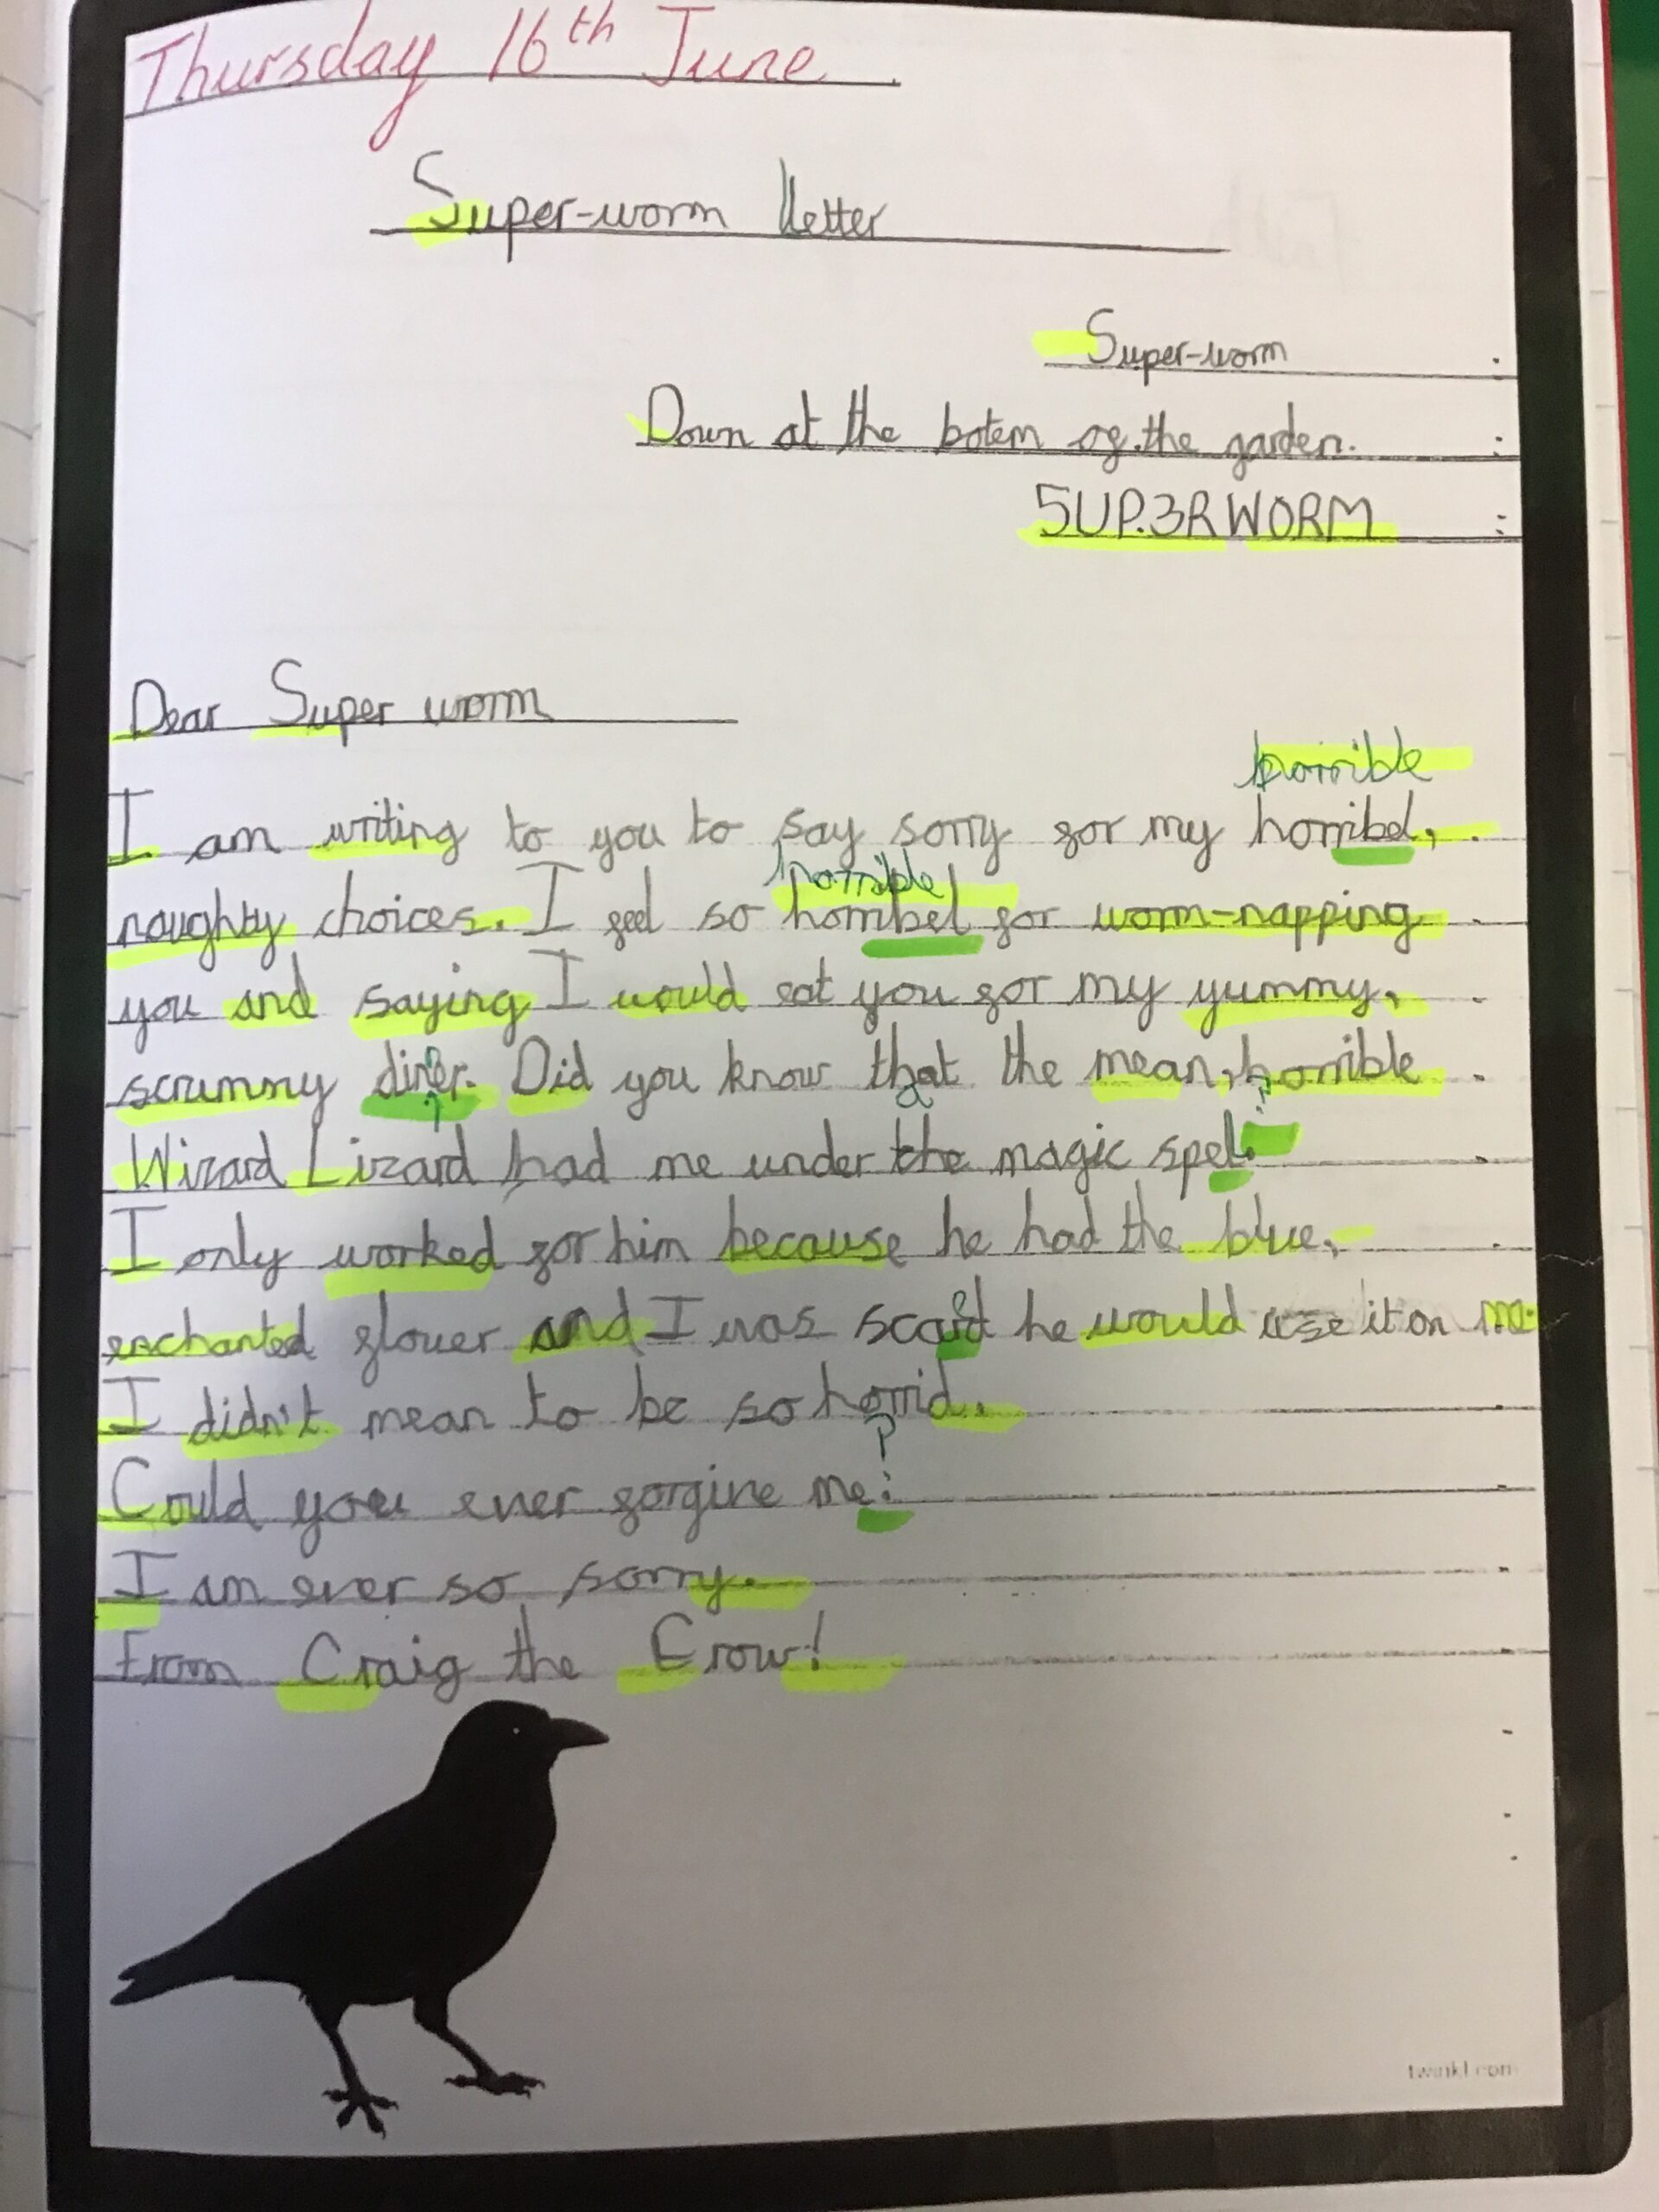 Thursday 16th June
Super-worm letter
Super-worm
Down at the botem of the garden.
5UP.3RWORM
Dear Super worm
horrible
I am writing to you to say sorry for my horribel,
horrible
noughty choices. I feel so horribel for worm-napping
you and saying I would eat you for my yummy,
scrummy diner. Did you know that the mean, horrible
Wizard Lizard had me under the magic spel?
I only worked for him because he had the blue,
enchanted flower and I was scard he would use it on me.
I didn't mean to be so horrid.
Could you ever forgive me?
I am ever so sorry.
From Craig the Crow!
twinkl.com